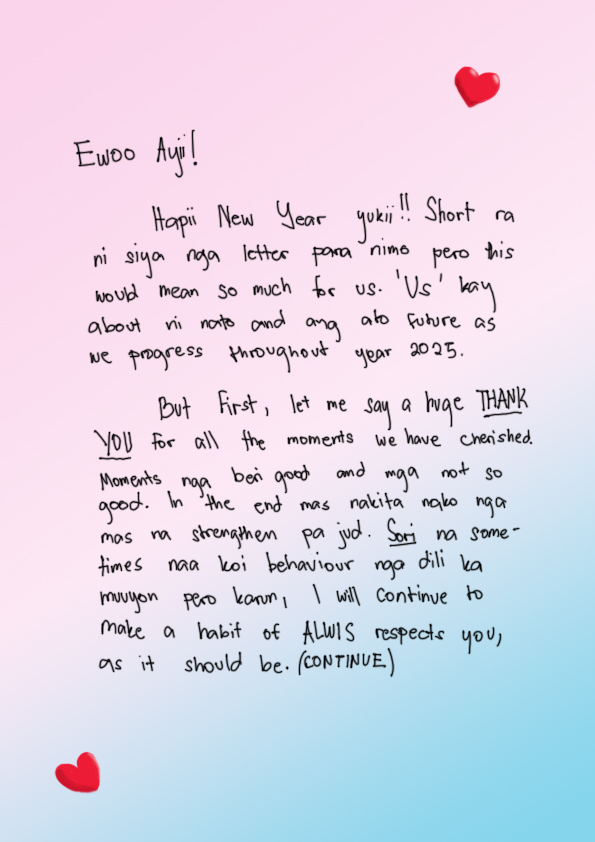 Ewoo Ayii!
Hapii New Year yukii!! Short ra
ni siya nga letter para nimo pero this
would mean so much for us. 'Us' kay
about ni nato and ang ato future as
we progress throughout year 2025.
But first, let me say a huge THANK
YOU for all the moments we have cherished.
Moments nga beri good and mga not so
good. In the end mas nakita nako nga
mas na strengthen pa jud. Sori na some-
times naa koi behaviour nga dili ka
muuyon pero karun, I will continue to
make a habit of ALWIS respects you,
as it should be. (CONTINUE)